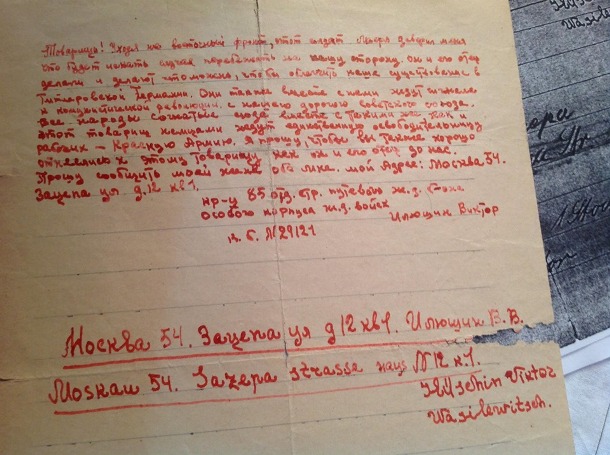 Товарищ! Уходя на восточный фронт, этот солдат Лукера доверил меня
что будет искать случая перебежать на нашу сторону. Он и его отец
делали и делают что можно, чтобы облегчить наше существование в
Гитлеровской Германии. Они также вместе с нами ждут тижело
к коммунистической революции, с нашего дорогого советского союза.
Все народы согнатые сюда вместе с такими же как и
этот товарищ немцами ждут единственную освободительницу
рабочих – Красную Армию. Я прошу, чтобы вы также хорошо
отнеслись к этому товарищу как он и его отец до нас.
Прошу сообщить моей жене обо мне. Мой адрес: Москва 54.
Зацепа ул д.12 кв 1.
кр-ц 85 отд. стр. путевого ж.д. б-на
особого корпуса ж.д. войск
Илющин Виктор
N29121
Москва 54. Зацепа ул д 12 кв 1. Илющин В.В.
Moskau 54. Zazepa strasse haus N12 k.1.
Iljuschin Viktor
Wasilewitsch.